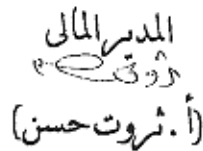 المدير المالى
ثروت
(أ. ثروت حسن)